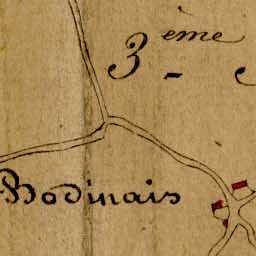 3 ème -
Bodinais